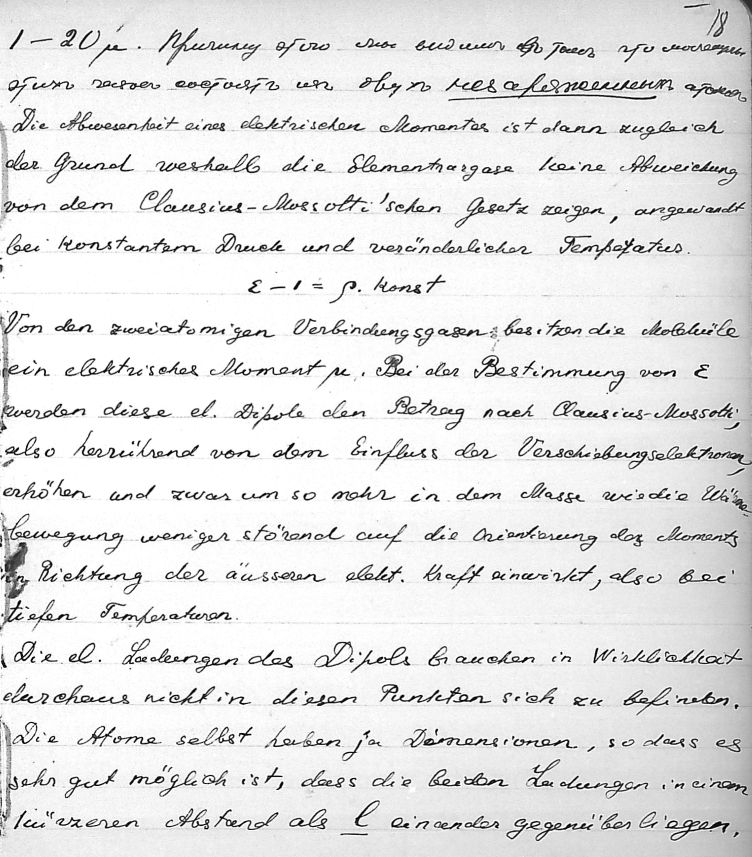 18
1 – 20 μ. Причину этого мы видим в том что молекулы
этих газов состоят из двух незаряженных атомов
Die Abwesenheit eines elektrischen Momentes ist dann zugleich
der Grund weshalb die Elementargase keine Abweichung
von dem Clausius-Mossotti'schen Gesetz zeigen, angewandt
bei konstantem Druck und veränderlicher Temperatur.
ε – 1 = ρ. konst
Von den zweiatomigen Verbindungsgasen besitzen die Moleküle
ein elektrisches Moment μ. Bei der Bestimmung von ε
werden diese el. Dipole den Betrag nach Clausius-Mossotti,
also herrührend von dem Einfluss der Verschiebungselektronen,
erhöhen und zwar um so mehr in dem Masse wie die Wärme-
bewegung weniger störend auf die Orientierung des Moments
in Richtung der äusseren elekt. Kraft einwirkt, also bei
tiefen Temperaturen.
Die el. Ladungen des Dipols brauchen in Wirklichkeit
durchaus nicht in diesen Punkten sich zu befinden.
Die Atome selbst haben ja Dimensionen, so dass es
sehr gut möglich ist, dass die beiden Ladungen in einem
kürzeren Abstand als l einander gegenüber liegen.